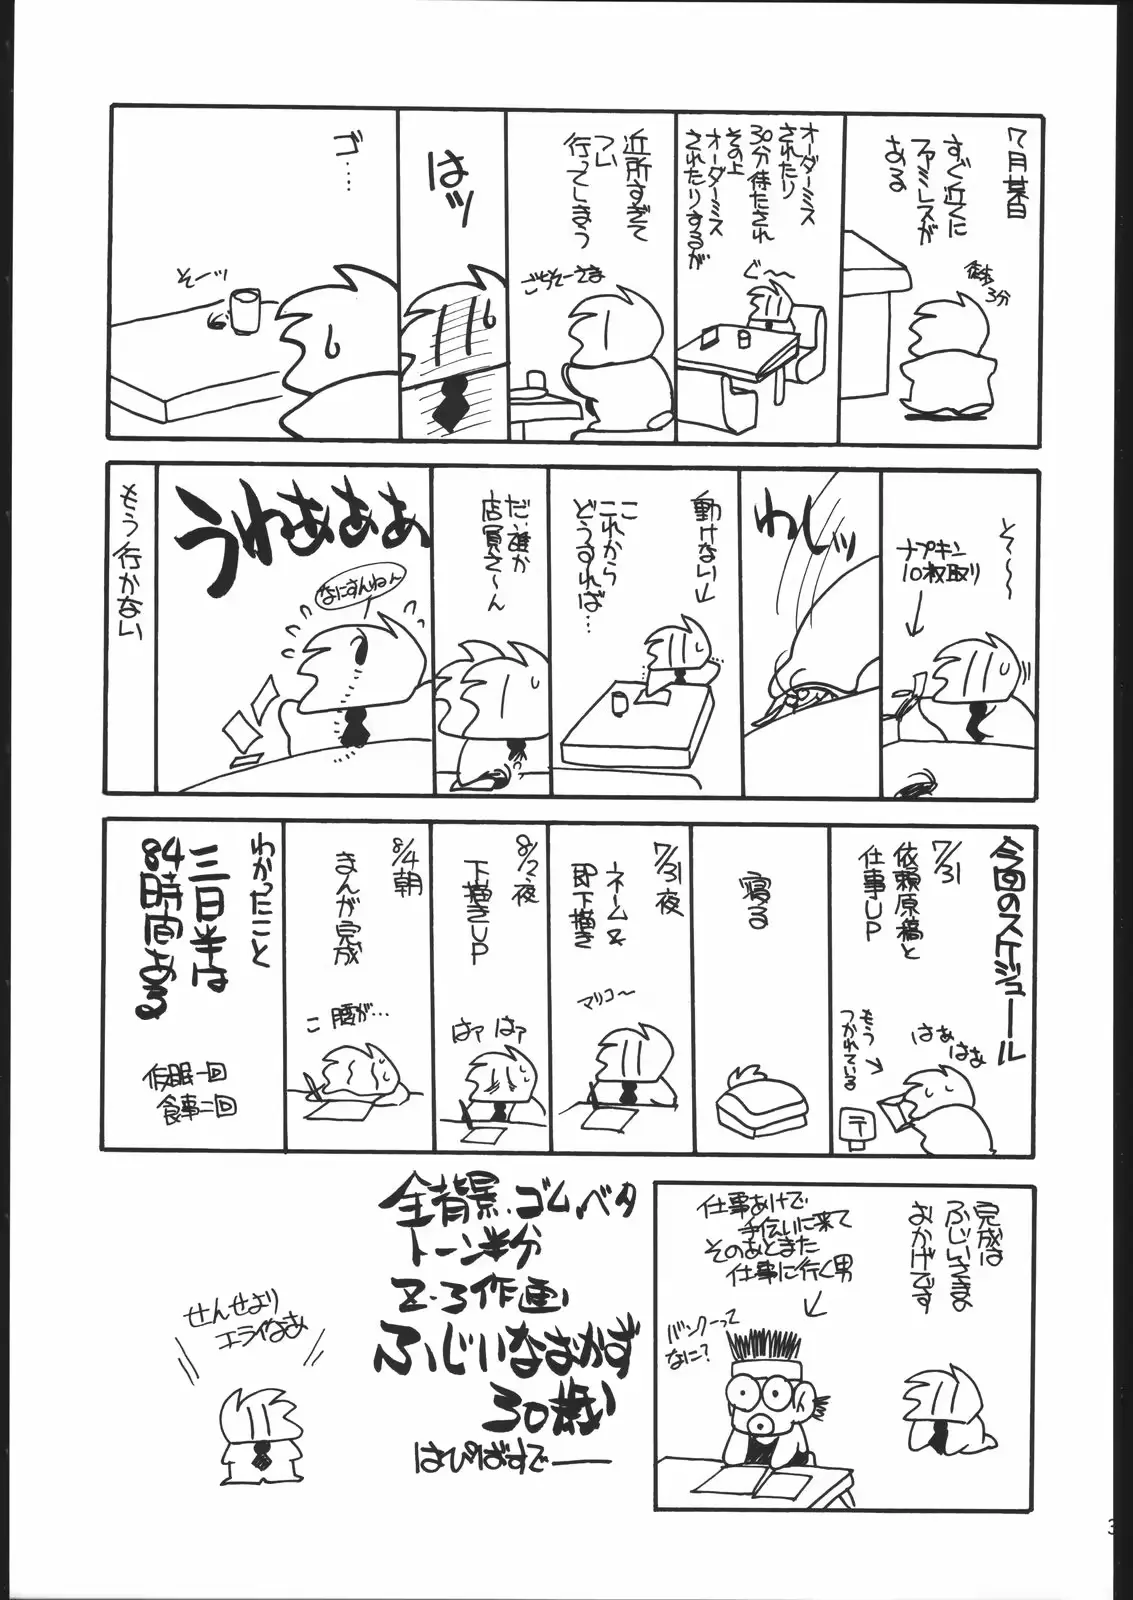 7月某日
すぐ近くに
ファミレスが
ある
徒歩
3分
オーダーミス
されたり
30分待たされ
その上
オーダーミス
されたりするが
ぐ〜
近所すぎて
つい
行ってしまう
ごちそーさま
はッ
ゴ……
そーッ
そ〜〜〜
ナプキン
10枚取り
わしッ
動けない
こ
これから
どうすれば…
だ、誰か
店員さ〜ん
うわぁぁぁ
なにすんねん
もう行かない
今回のスケジュール
7/31
依頼原稿と
仕事UP
はぁ
はぁ
もう
つかれている
〒
寝る
7/31夜
ネーム&
即下描き
マリコ〜
8/2夜
下描きUP
はァ はァ
8/4朝
まんが完成
こ 腰が…
わかったこと
三日半は
84時間ある
仮眠一回
食事二回
完成は
ふじいさまの
おかげです
仕事あけで
手伝いに来て
そのあとまた
仕事に行く男
バンクーって
なに?
全背景、ゴム、ベタ
トーン半分
Z・3作画、
ふじいなおかず
30歳
はぴばすでー
せんせより
エライなあ
3